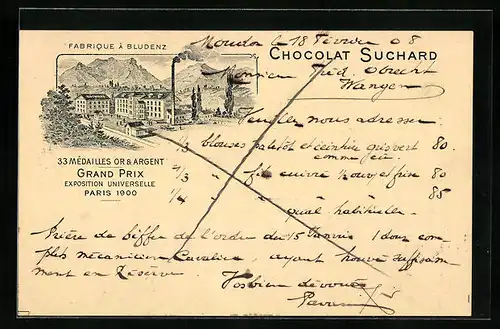 FABRIQUE À BLUDENZ
Moudon le 18 Février 08
CHOCOLAT SUCHARD
Monsieur Fréd. Obrecht
Wangen
Veuillez nous adresser
1/3 blouses paletot et ceinture gris vert 80.
comme
33 MÉDAILLES OR & ARGENT
GRAND PRIX
EXPOSITION UNIVERSELLE
PARIS 1900
2/3 " fil cuivre 80
1/4 " " 85
" qual. habituelle
Prière de biffer de l'ordre du 15 Janvier 1 douz com
plets mécanicien Cavalier, ayant trouvé suffisam
ment en Réserve
Vos bien dévoués